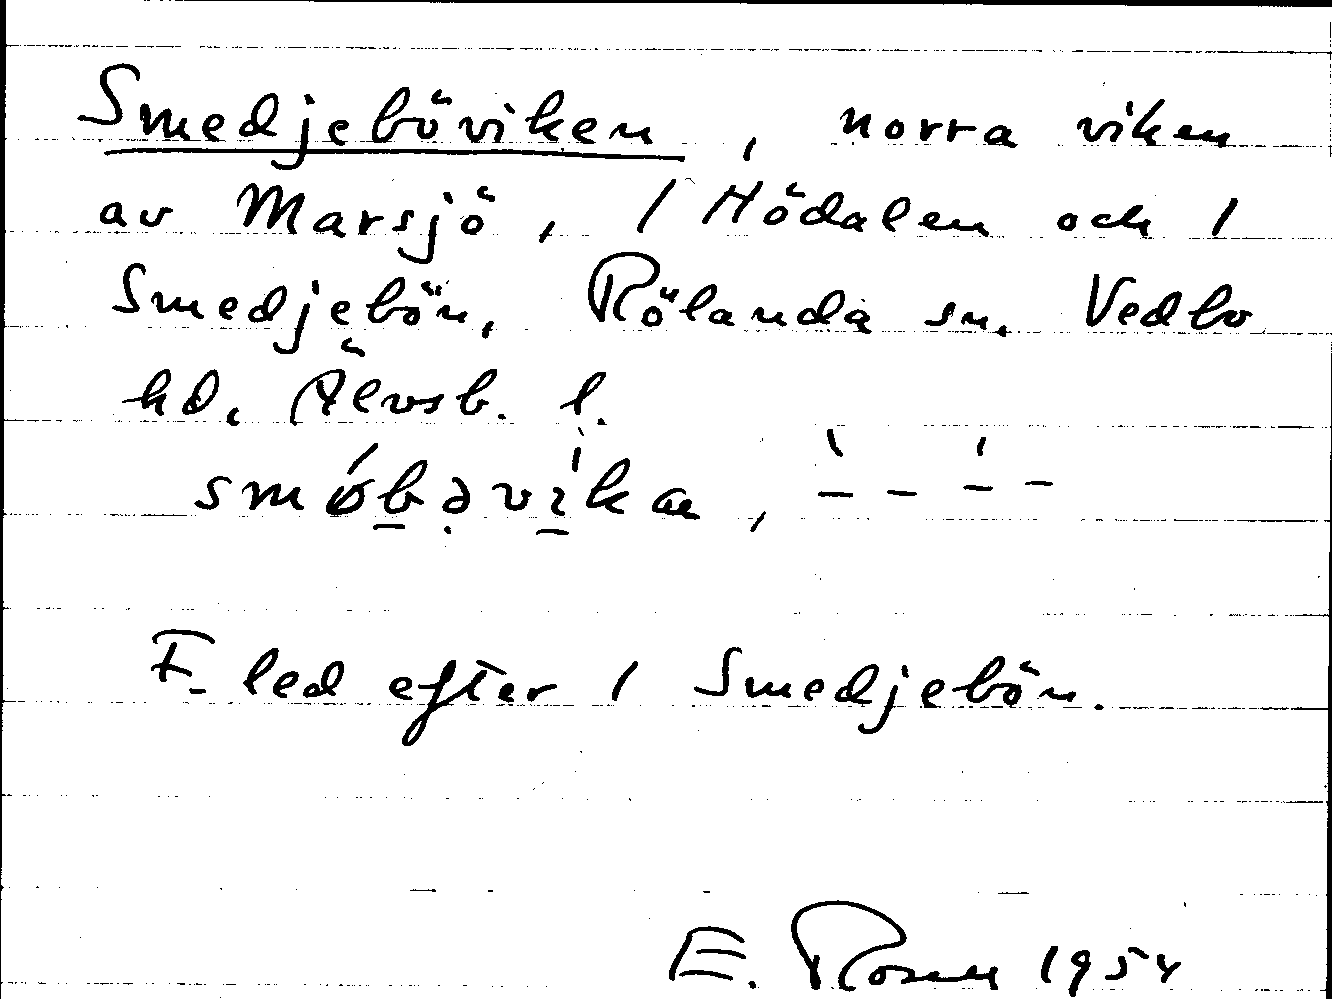 Smedjeböviken, norra viken
av Marsjö, 1 Hödalen och 1
Smedjebön, Rölanda sn. Vedbo
hd. Älvsb. l.
F. led efter 1 Smedjebön.
E. Rosell 1954